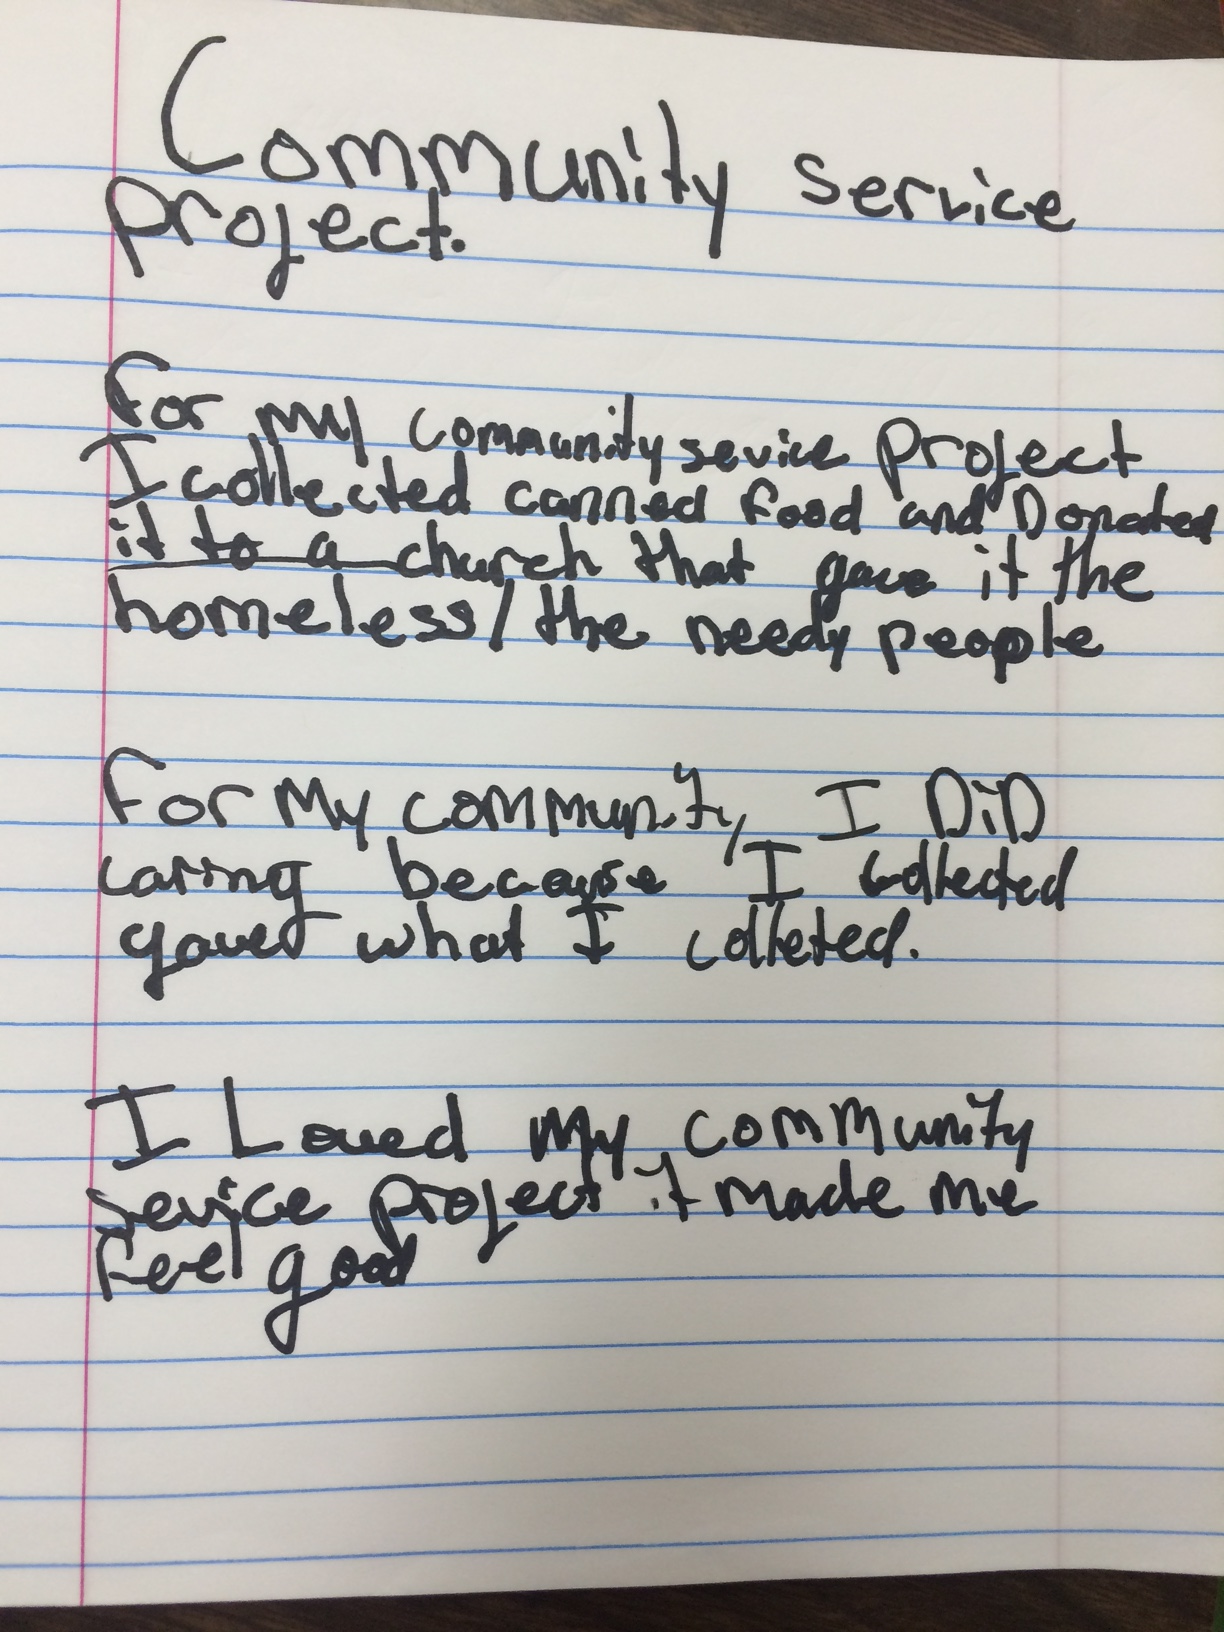 Community service
project.
for my community sevice project
I collected canned food and Donated
it to a church that gave it the
homeless/the needy people
For My community, I DiD
caring because I collected
gave what I colleted.
I Loved my community
sevice project it made me
feel good